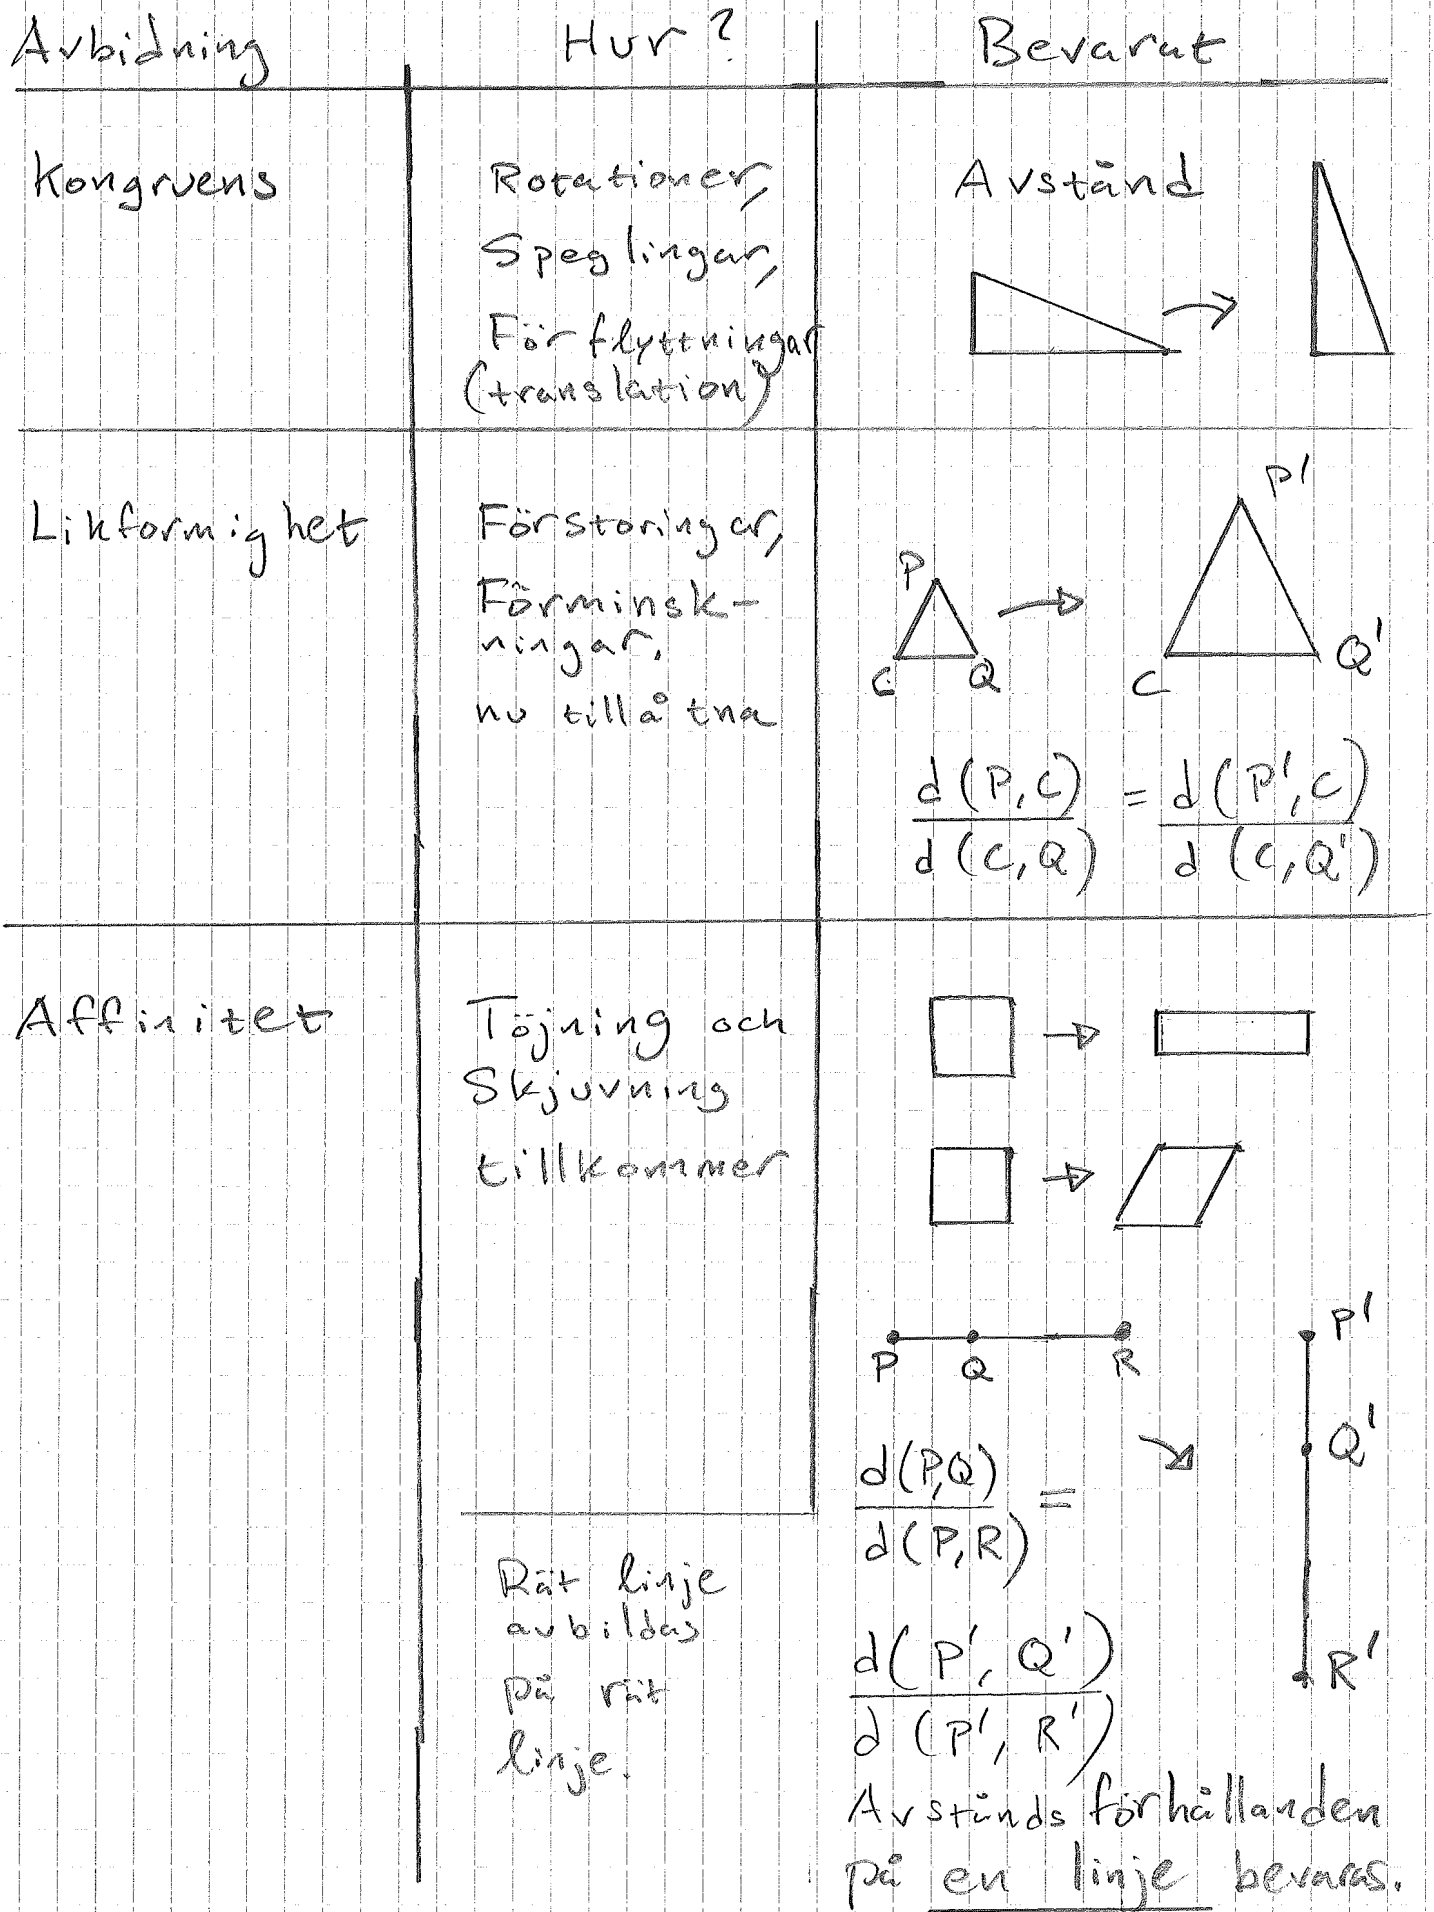 Avbidning Hur? Bevarat
Kongruens
Rotationer,
Speglingar,
Förflyttningar
(translation)
Avstånd
Likformighet
Förstoringar,
Förminsk-
ningar,
nu tillåtna
P'
P
C Q
C Q'
d(P,C) = d(P',C)
d(C,Q) d(C,Q')
Affinitet
Töjning och
Skjuvning
tillkommer
P Q R
P'
Q'
R'
d(P,Q) =
d(P,R)
d(P',Q')
d(P',R')
Rät linje
avbildas
på rät
linje.
Avståndsförhållanden
på en linje bevaras.